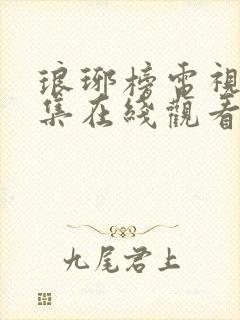 琅琊榜電視
集在綫觀看
九尾君上